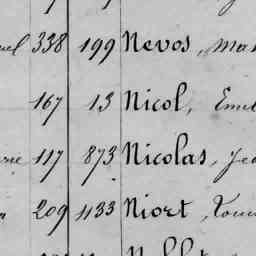 338 199 Nevos,
167 13 Nicol, Emil
117 873 Nicolas, Jea
209 1133 Niort, Loui